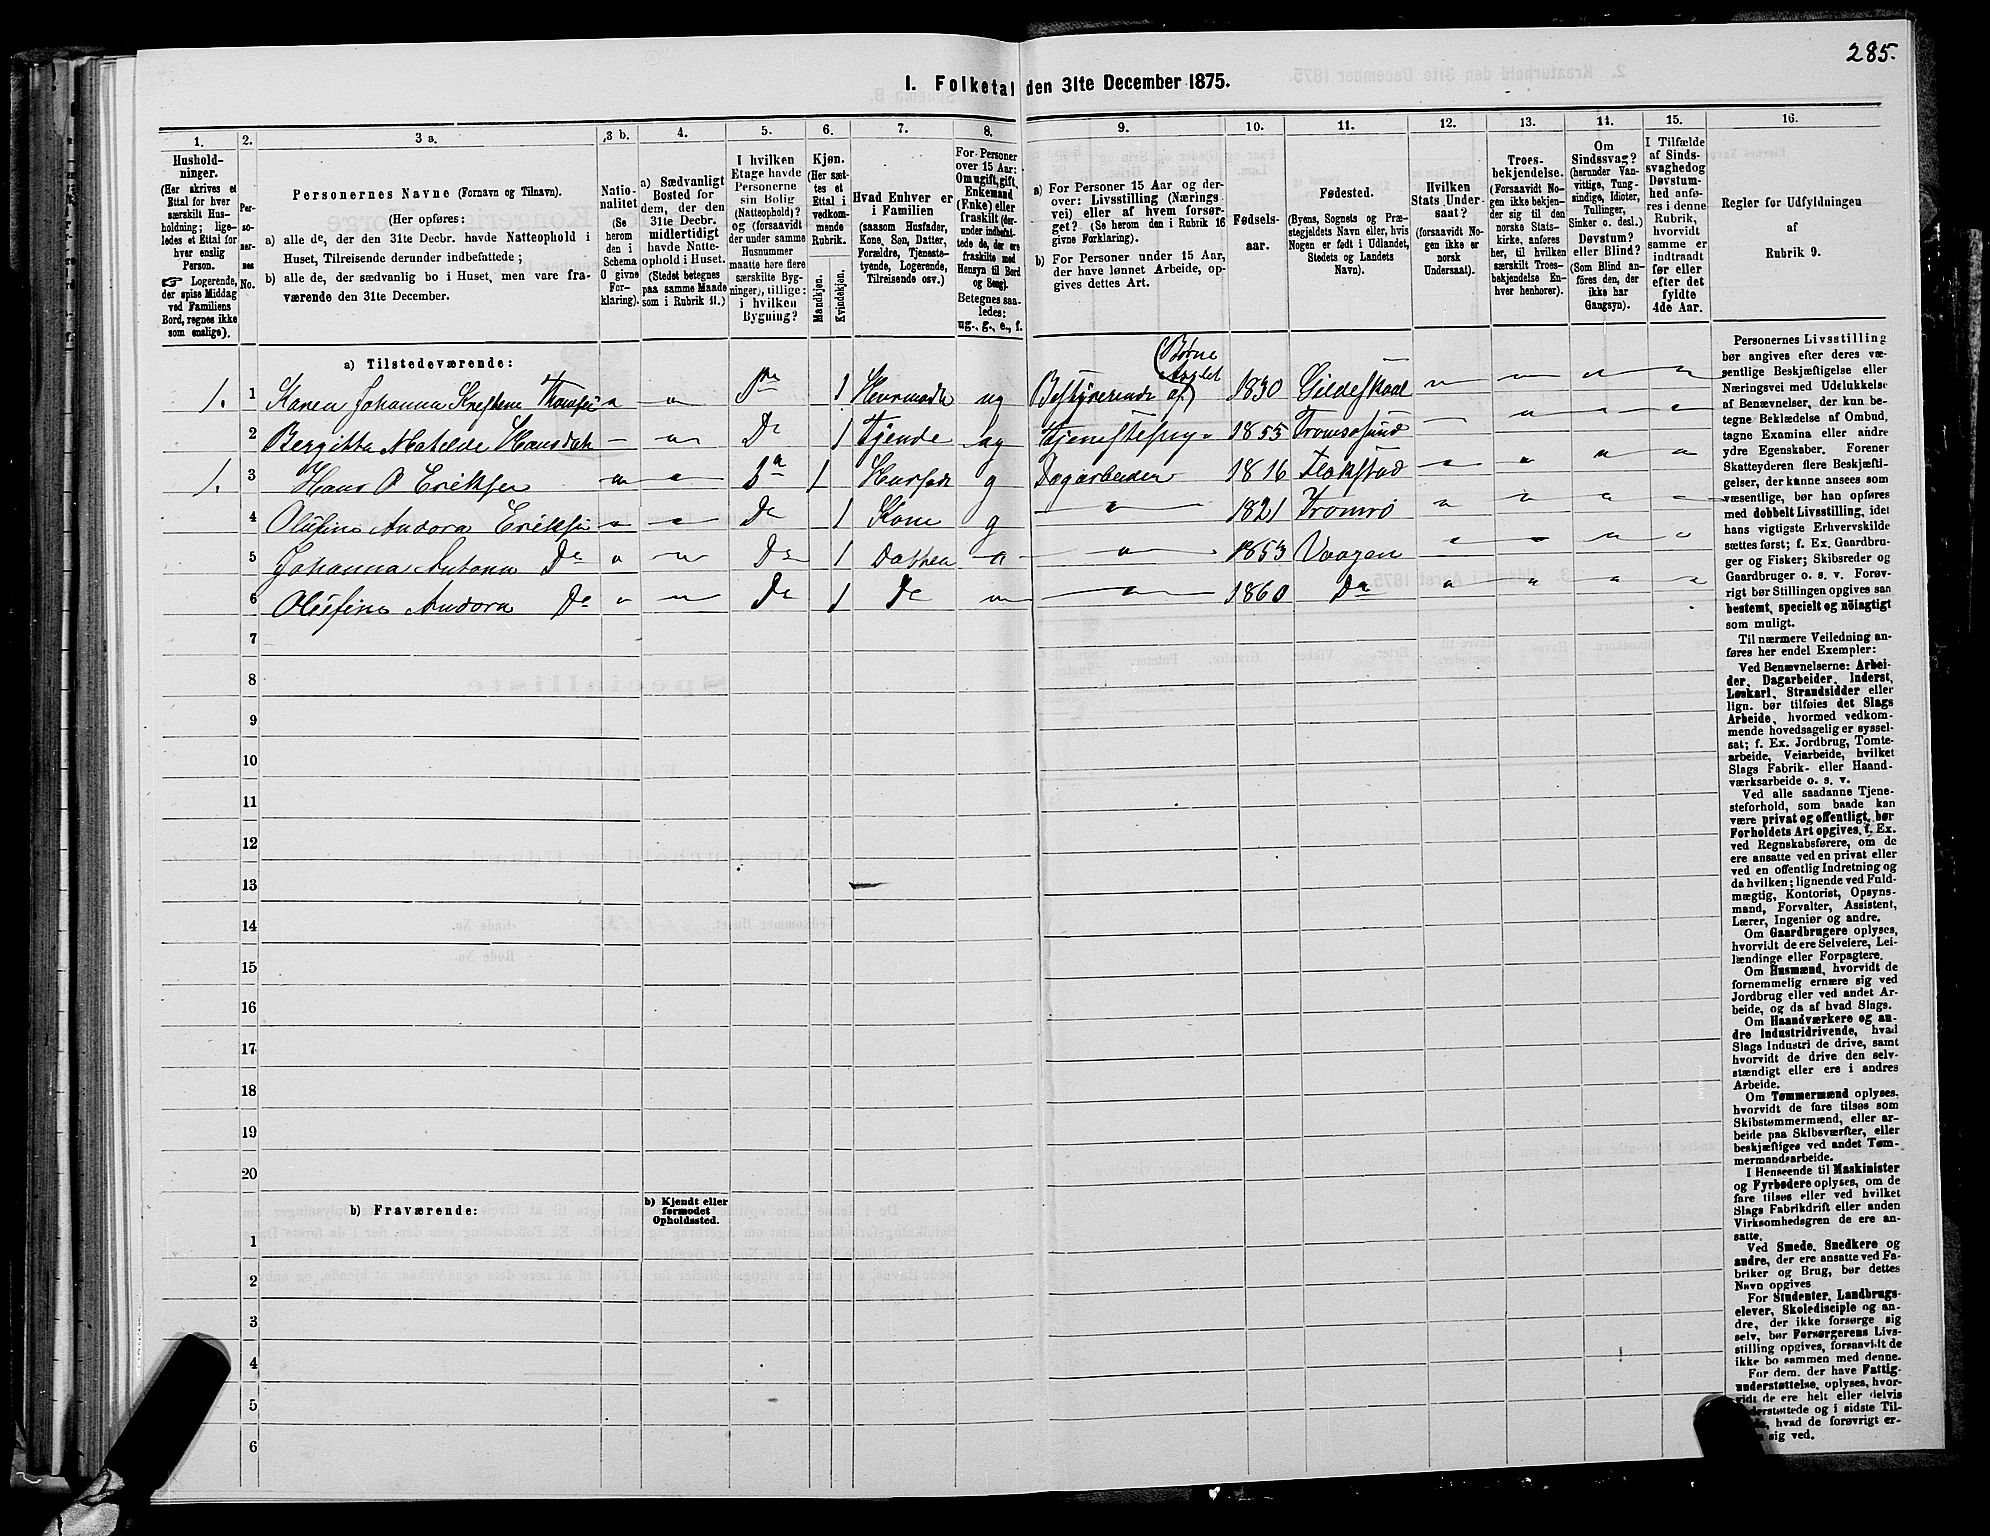 285.
I. Folketal den 31te December 1875.
1.
Hushold-
ninger.
(Her skrives et
Ettal for hver
særskilt Hus-
holdning; lige-
ledes et Ettal for
hver enslig
Person.
☞ Logerende,
der spise Middag
ved Familiens
Bord, regnes ikke
som enslige).
2.
Per-
so-
ner-
nes
No.
3 a.
Personernes Navne (Fornavn og Tilnavn).
(Her opføres:
a) alle de, der den 31te Decbr. havde Natteophold i
Huset, Tilreisende derunder indbefattede;
b) alle de, der sædvanlig bo i Huset, men vare fra-
værende den 31te December.
3 b.
Natio-
nalitet
(Se
herom
den i
Schema
O givne
For-
klaring).
4.
a) Sædvanligt
Bosted for
dem, der den
31te Decbr.
midlertidigt
havde Natte-
ophold i Huset.
(Stedet betegnes
paa samme Maade
som i Rubrik 11.)
5.
I hvilken
Etage havde
Personerne
sin Bolig
(Natteophold)?
og (forsaavidt
der under samme
Husnummer
maatte høre flere
særskilte Byg-
ninger), tillige:
i hvilken
Bygning?
6.
Kjøn.
(Her sæt-
tes et
Ettal i
vedkom-
mende
Rubrik.
Mandkjøn.
Kvindekjøn.
7.
Hvad Enhver er
i Familien
(saasom Husfader,
Kone, Søn, Datter,
Forældre, Tjeneste-
tyende, Logerende,
Tilreisende osv.)
8.
For Personer
over 15 Aar:
Om ugift, gift,
Enkemand
(Enke) eller
fraskilt (der-
under indbefat-
tede de, der ere
fraskilte med
Hensyn til Bord
og Seng).
Betegnes saa-
ledes:
ug., g., e., f.
9.
a) For Personer 15 Aar og der-
over: Livsstilling (Nærings-
vei) eller af hvem forsør-
get? (Se herom den i Rubrik 16
givne Forklaring).
b) For Personer under 15 Aar,
der have lønnet Arbeide, op-
gives dettes Art.
10.
Fødsels-
aar.
11.
Fødested.
(Byens, Sognets og Præ-
stegjeldets Navn eller, hvis
Nogen er født i Udlandet,
Stedets og Landets
Navn).
12.
Hvilken
Stats Under-
saat?
(forsaavidt No-
gen ikke er
norsk
Undersaat).
13.
Troes-
bekjendelse.
(Forsaavidt No-
gen ikke bekjen-
der sig til den
norske Stats-
kirke, anføres
her, til hvilken
særskilt Troes-
bekjendelse En-
hver henhører).
14.
Om
Sindssvag?
(herunder Van-
vittige, Tung-
sindige, Idioter,
Tullinger,
Sinker o. desl.)
Døvstum?
eller Blind?
(Som Blind an-
føres den, der
ikke har
Gangsyn).
15.
I Tilfælde
af Sinds-
svaghed og
Døvstum-
hed anfø-
res i denne
Rubrik,
hvorvidt
samme er
indtraadt
før eller
efter det
fyldte
4de Aar.
16.
Regler for Udfyldningen
af
Rubrik 9.
a) Tilstedeværende:
1. 1 Karen Johanna 1 ug Bestyrerinde af (Børne Asylet) 1830 Gildeskaal
2 Bergitta Matilde Do 1 Tjende ug 1855 Tromsøsund
1. 3 Hans O Eriksen 1 Husfad g Dagarbeider 1816 Flakstad
4 Olufine Andora Eriksen Do 1 Kone g 1821 Tromsø
5 Johanna Antona Do Do 1 Datter 1853 Vaagen
6 Olufine Andora Do Do 1 Do 1860 Do
7
8
9
10
11
12
13
14
15
16
17
18
19
20
b) Fraværende:
b) Kjendt eller
formodet
Opholdssted.
1
2
3
4
5
6
Personernes Livsstilling
bør angives efter deres væ-
sentlige Beskjæftigelse eller
Næringsvei med Udelukkelse
af Benævnelser, der kun be-
tegne Beklædelse af Ombud,
tagne Examina eller andre
ydre Egenskaber. Forener
Skatteyderen flere Beskjæfti-
gelser, der kunne ansees som
væsentlige, bør han opføres
med dobbelt Livsstilling, idet
hans vigtigste Erhvervskilde
sættes først; f. Ex. Gaardbru-
ger og Fisker; Skibsreder og
Gaardbruger o. s. v. Forøv-
rigt bør Stillingen opgives saa
bestemt, specielt og nöiagtigt
som muligt.
Til nærmere Veiledning an-
føres her endel Exempler:
Ved Benævnelserne: Arbei-
der, Dagarbeider, Inderst,
Løskarl, Strandsidder eller
lign. bør tilføies det Slags
Arbeide, hvormed vedkom-
mende hovedsagelig er syssel-
sat; f. Ex. Jordbrug, Tomte-
arbeide, Veiarbeide, hvilket
Slags Fabrik- eller Haand-
værksarbeide o. s. v.
Ved alle saadanne Tjene-
steforhold, som baade kan
være privat og offentligt, bør
Forholdets Art opgives, f. Ex.
ved Regnskabsførere, om de
ere ansatte ved en privat eller
ved en offentlig Indretning og
da hvilken; lignende ved Fuld-
mægtig, Kontorist, Opsyns-
mand, Forvalter, Assistent,
Lærer, Ingeniør og andre.
Om Gaardbrugere oplyses,
hvorvidt de ere Selveiere, Lei-
lændinge eller Forpagtere.
Om Husmænd, hvorvidt de
fornemmelig ernære sig ved
Jordbrug eller ved andet Ar-
beide, og da af hvad Slags.
Om Haandværkere og an-
dre Industridrivende, hvad
Slags Industri de drive, samt
hvorvidt de drive den selv-
stændigt eller ere i andres
Arbeide.
Om Tømmermænd oplyses,
hvorvidt de fare tilsøs som
Skibstømmermænd, eller ar-
beide paa Skibsværfter, eller
beskjæftiges ved andet Tøm-
mermandsarbeide.
I Henseende til Maskinister
og Fyrbødere oplyses, om de
fare tilsøs eller ved hvilket
Slags Fabrikdrift eller anden
Virksomhedsgren de ere an-
satte.
Ved Smede, Snedkere og
andre, der ere ansatte ved Fa-
briker og Brug, bør dettes
Navn opgives
For Studenter, Landbrugs-
elever, Skoledisciple og an-
dre, der ikke forsørge sig
selv, bør Forsørgerens Livs-
stilling opgives, forsaavidt de
ikke bo sammen med denne.
For dem, der have Fattig-
understøttelse, oplyses, hvor-
vidt de ere helt eller delvis
understøttede og i sidste Til-
hvad de forøvrigt er-
sig ved.